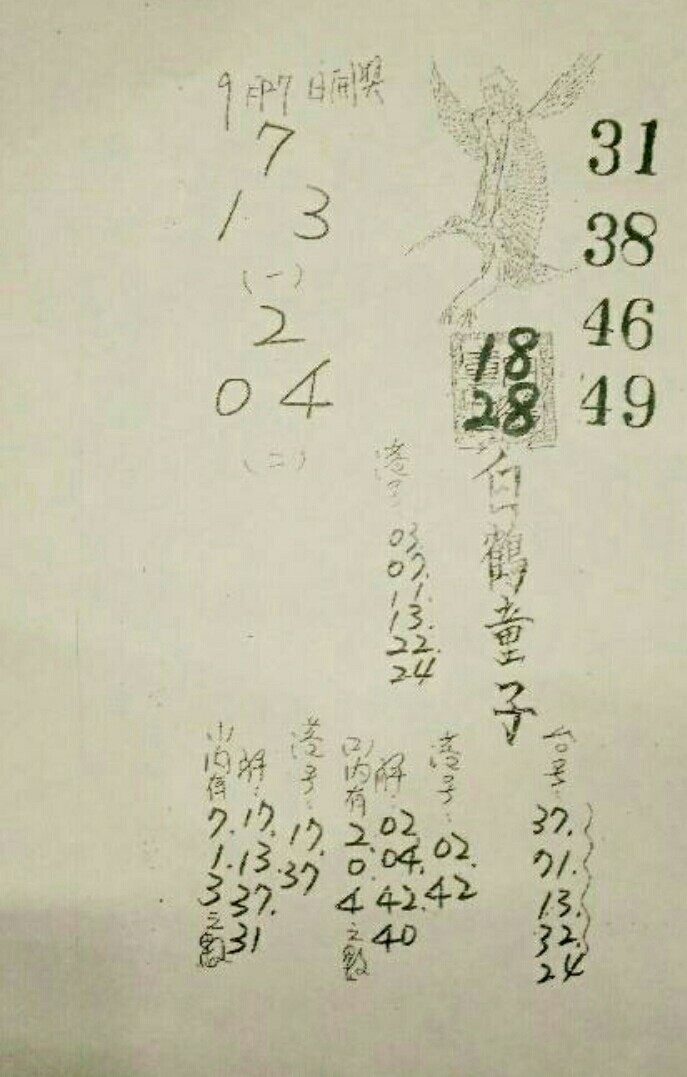 9月7日開獎
7
1 3
(一)
2
0 4
(二)
31
38
46
49
18
28
白鶴童子
港号:
03.
07.
11.
13.
22.
24
台号:
37.
71.
13.
32.
24
港号:
02.
42
解:
02
04.
42.
40
(二)内有
2.
0.
4
之數
港号:
17.
37
解:
17.
13.
37.
31
(一)内有
7.
1.
3
之數